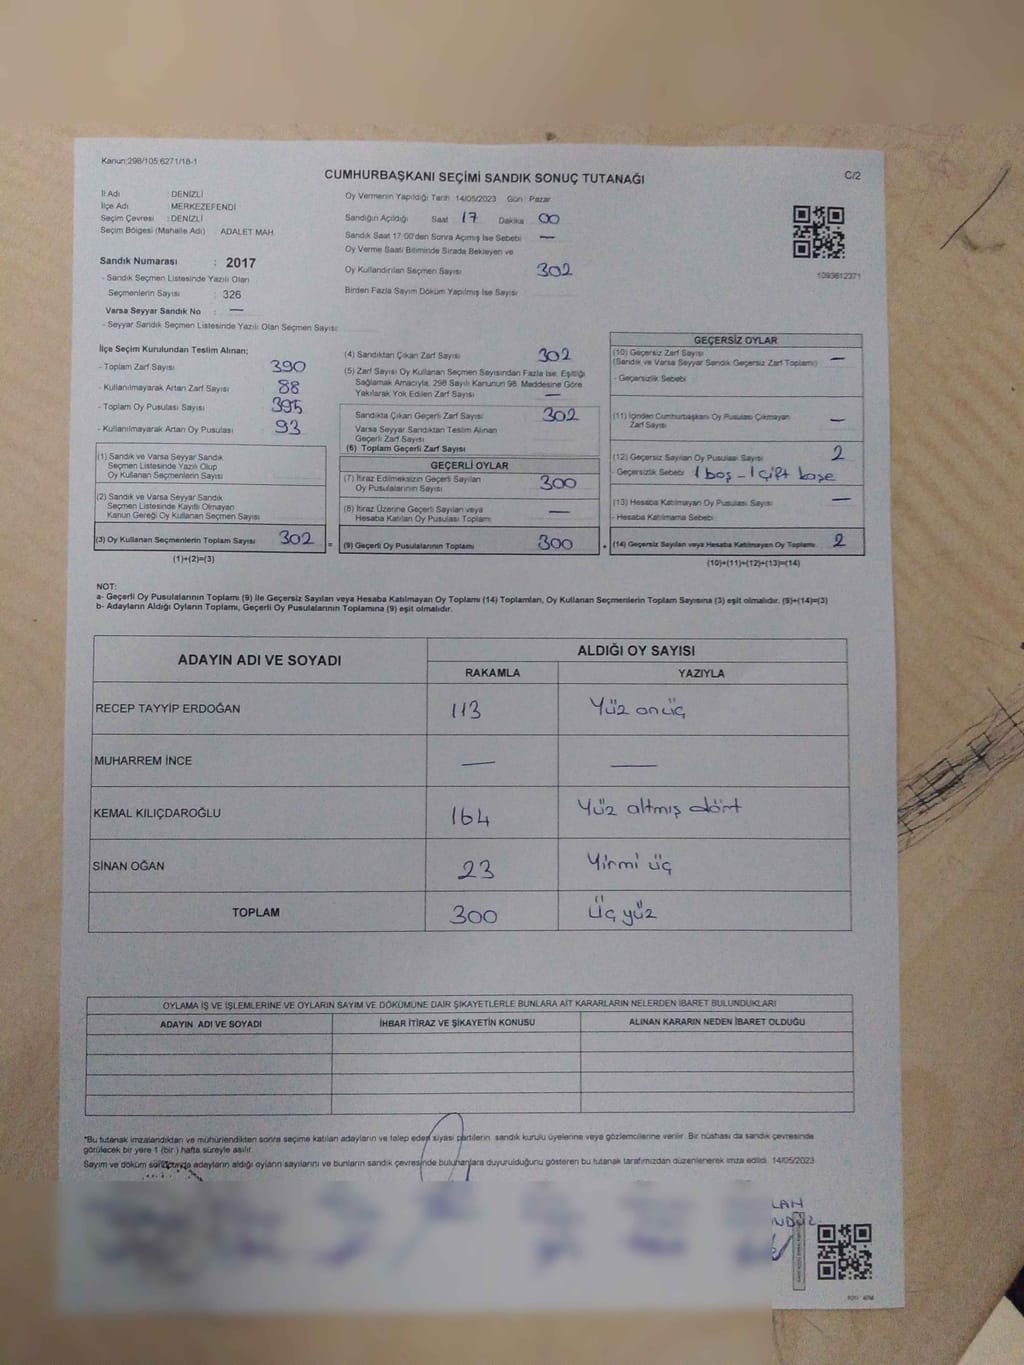 Kanun:298/105;6271/18-1
CUMHURBAŞKANI SEÇİMİ SANDIK SONUÇ TUTANAĞI
C/2
İl Adı : DENİZLİ
İlçe Adı : MERKEZEFENDİ
Seçim Çevresi : DENİZLİ
Seçim Bölgesi (Mahalle Adı) ADALET MAH.
Sandık Numarası : 2017
- Sandık Seçmen Listesinde Yazılı Olan
Seçmenlerin Sayısı : 326
Varsa Seyyar Sandık No : —
- Seyyar Sandık Seçmen Listesinde Yazılı Olan Seçmen Sayısı:
Oy Vermenin Yapıldığı Tarih 14/05/2023 Gün Pazar
Sandığın Açıldığı Saat 17 Dakika 00
Sandık Saat 17:00'den Sonra Açımış İse Sebebi —
Oy Verme Saati Bitiminde Sırada Bekleyen ve
Oy Kullandırılan Seçmen Sayısı 302
Birden Fazla Sayım Döküm Yapılmış İse Sayısı
1093612371
İlçe Seçim Kurulundan Teslim Alınan;
- Toplam Zarf Sayısı 390
- Kullanılmayarak Artan Zarf Sayısı 88
- Toplam Oy Pusulası Sayısı 395
- Kullanılmayarak Artan Oy Pusulası 93
(1) Sandık ve Varsa Seyyar Sandık
Seçmen Listesinde Yazılı Olup
Oy Kullanan Seçmenlerin Sayısı
(2) Sandık ve Varsa Seyyar Sandık
Seçmen Listesinde Kayıtlı Olmayan
Kanun Gereği Oy Kullanan Seçmen Sayısı
(3) Oy Kullanan Seçmenlerin Toplam Sayısı 302 =
(1)+(2)=(3)
(4) Sandıktan Çıkan Zarf Sayısı 302
(5) Zarf Sayısı Oy Kullanan Seçmen Sayısından Fazla İse; Eşitliği
Sağlamak Amacıyla, 298 Sayılı Kanunun 98. Maddesine Göre
Yakılarak Yok Edilen Zarf Sayısı —
Sandıkta Çıkan Geçerli Zarf Sayısı 302
Varsa Seyyar Sandıktan Teslim Alınan
Geçerli Zarf Sayısı
(6) Toplam Geçerli Zarf Sayısı
GEÇERLİ OYLAR
(7) İtiraz Edilmeksizin Geçerli Sayılan
Oy Pusulalarının Sayısı 300
(8) İtiraz Üzerine Geçerli Sayılan veya
Hesaba Katılan Oy Pusulası Toplamı —
(9) Geçerli Oy Pusulalarının Toplamı 300 +
GEÇERSİZ OYLAR
(10) Geçersiz Zarf Sayısı —
(Sandık ve Varsa Seyyar Sandık Geçersiz Zarf Toplamı)
- Geçersizlik Sebebi
(11) İçinden Cumhurbaşkanı Oy Pusulası Çıkmayan
Zarf Sayısı —
(12) Geçersiz Sayılan Oy Pusulası Sayısı 2
Geçersizlik Sebebi 1 boş - 1 çift kaşe
(13) Hesaba Katılmayan Oy Pusulası Sayısı —
- Hesaba Katılmama Sebebi
(14) Geçersiz Sayılan veya Hesaba Katılmayan Oy Toplamı 2
(10)+(11)+(12)+(13)=(14)
NOT:
a- Geçerli Oy Pusulalarının Toplamı (9) ile Geçersiz Sayılan veya Hesaba Katılmayan Oy Toplamı (14) Toplamları, Oy Kullanan Seçmenlerin Toplam Sayısına (3) eşit olmalıdır. (9)+(14)=(3)
b- Adayların Aldığı Oyların Toplamı, Geçerli Oy Pusulalarının Toplamına (9) eşit olmalıdır.
ADAYIN ADI VE SOYADI ALDIĞI OY SAYISI
RAKAMLA YAZIYLA
RECEP TAYYİP ERDOĞAN 113 Yüz onüç
MUHARREM İNCE — —
KEMAL KILIÇDAROĞLU 164 Yüz altmış dört
SİNAN OĞAN 23 Yirmi üç
TOPLAM 300 Üç yüz
OYLAMA İŞ VE İŞLEMLERİNE VE OYLARIN SAYIM VE DÖKÜMÜNE DAİR ŞİKAYETLERLE BUNLARA AİT KARARLARIN NELERDEN İBARET BULUNDUKLARI
ADAYIN ADI VE SOYADI İHBAR İTİRAZ VE ŞİKAYETİN KONUSU ALINAN KARARIN NEDEN İBARET OLDUĞU
*Bu tutanak imzalandıktan ve mühürlendikten sonra seçime katılan adayların ve talep eden siyasi partilerin sandık kurulu üyelerine veya gözlemcilerine verilir. Bir nüshası da sandık çevresinde
görülecek bir yere 1 (bir) hafta süreyle asılır.
Sayım ve döküm sonucunda adayların aldığı oyların sayılarını ve bunların sandık çevresinde bulunanlara duyurulduğunu gösteren bu tutanak tarafımızdan düzenlenerek imza edildi. 14/05/2023
LAN